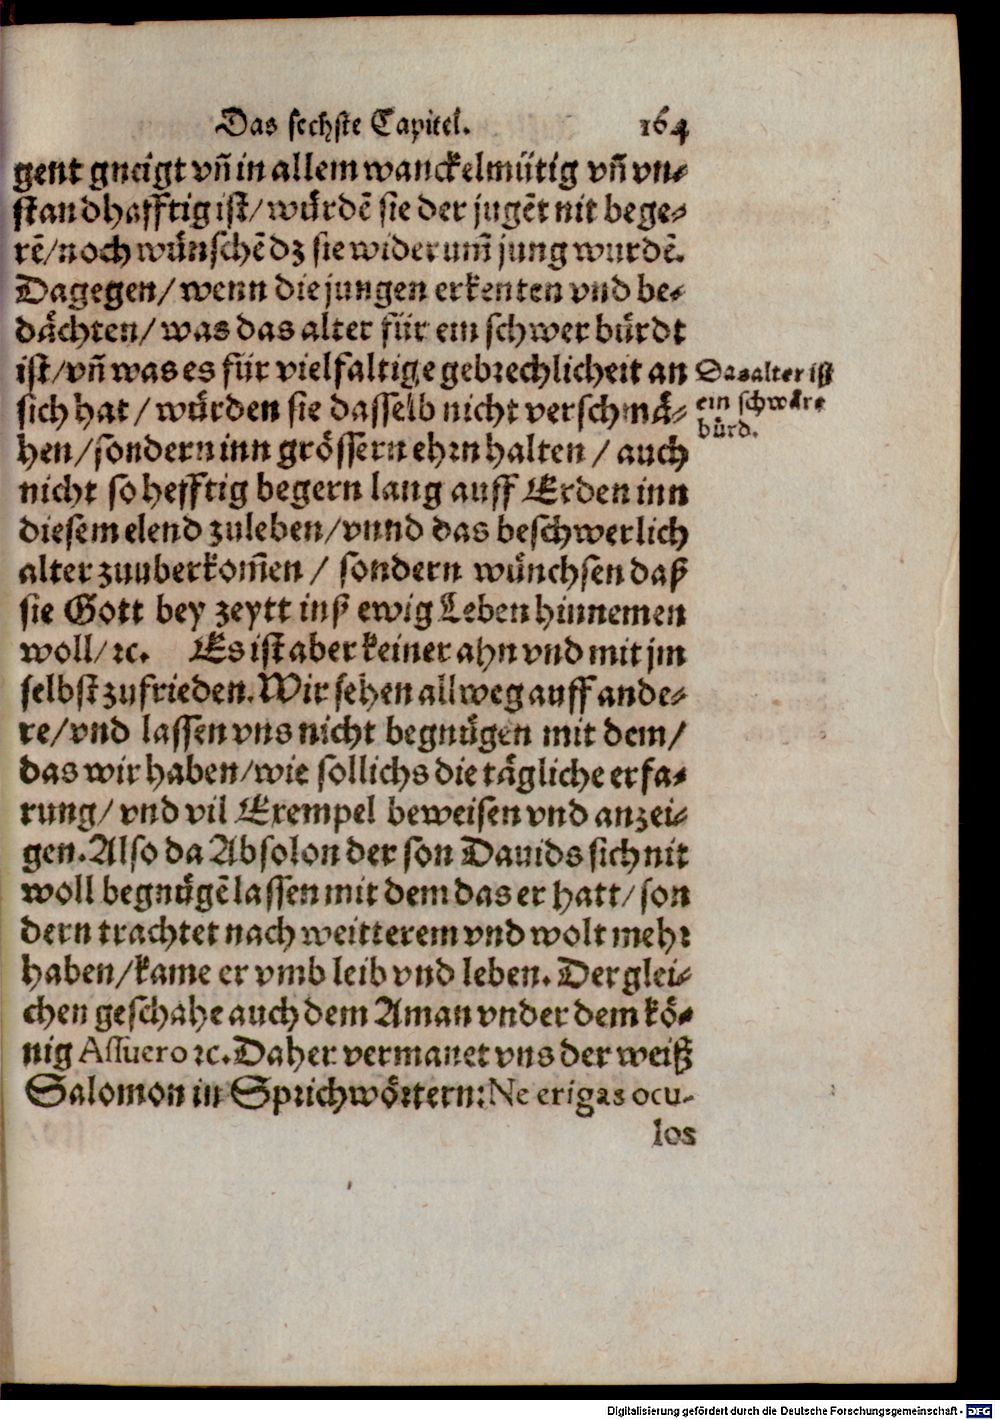 Das sechste Capitel. 164
gent gneigt vñ in allem wanckelmütig vñ vn-
standhafftig ist/ wůrdē sie der jugēt nit bege-
rē/ noch wůnschē dz sie widerum̃ jung wurdē.
Dagegen/ wenn die jungen erkenten vnd be-
dåchten/ was das alter für ein schwer bůrdt
ist/ vñ was es für vielfaltige gebrechlicheit an
sich hat/ wůrden sie dasselb nicht verschmå-
hen/ sondern inn grössern ehrn halten/ auch
nicht so hefftig begern lang auff Erden inn
diesem elend zuleben/ vnnd das beschwerlich
alter zuuberkom̃en/ sondern wůnchsen daß
sie Gott bey zeytt inß ewig Leben hinnemen
woll/ ꝛc. Es ist aber keiner ahn vnd mit jm
selbst zufrieden. Wir sehen allweg auff ande-
re/ vnd lassen vns nicht begnůgen mit dem/
das wir haben/ wie sollichs die tågliche erfa-
rung/ vnd vil Exempel beweisen vnd anzei-
gen. Also da Absolon der son Dauids sich nit
woll begnůgē lassen mit dem das er hatt/ son
dern trachtet nach weitterem vnd wolt mehr
haben/ kame er vmb leib vnd leben. Der glei-
chen geschahe auch dem Aman vnder dem kö-
nig Assuero ꝛc. Daher vermanet vns der weiß
Salomon in Sprichwörtern: Ne erigas ocu-
los
Das alter ist
ein schwåre
bůrd.
Digitalisierung gefördert durch die Deutsche Forschungsgemeinschaft - DFG